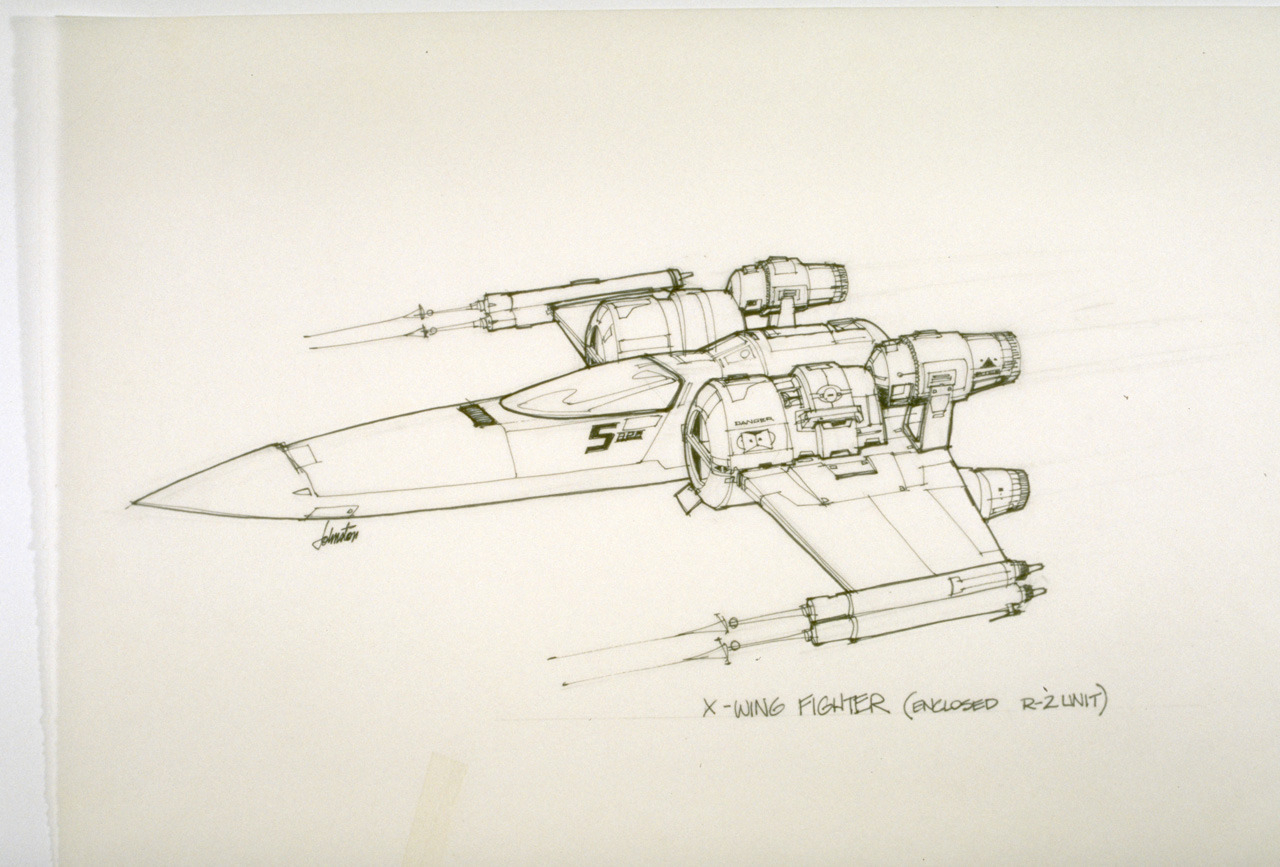 DANGER
5
Johnston
X-WING FIGHTER (ENCLOSED R-2 UNIT)